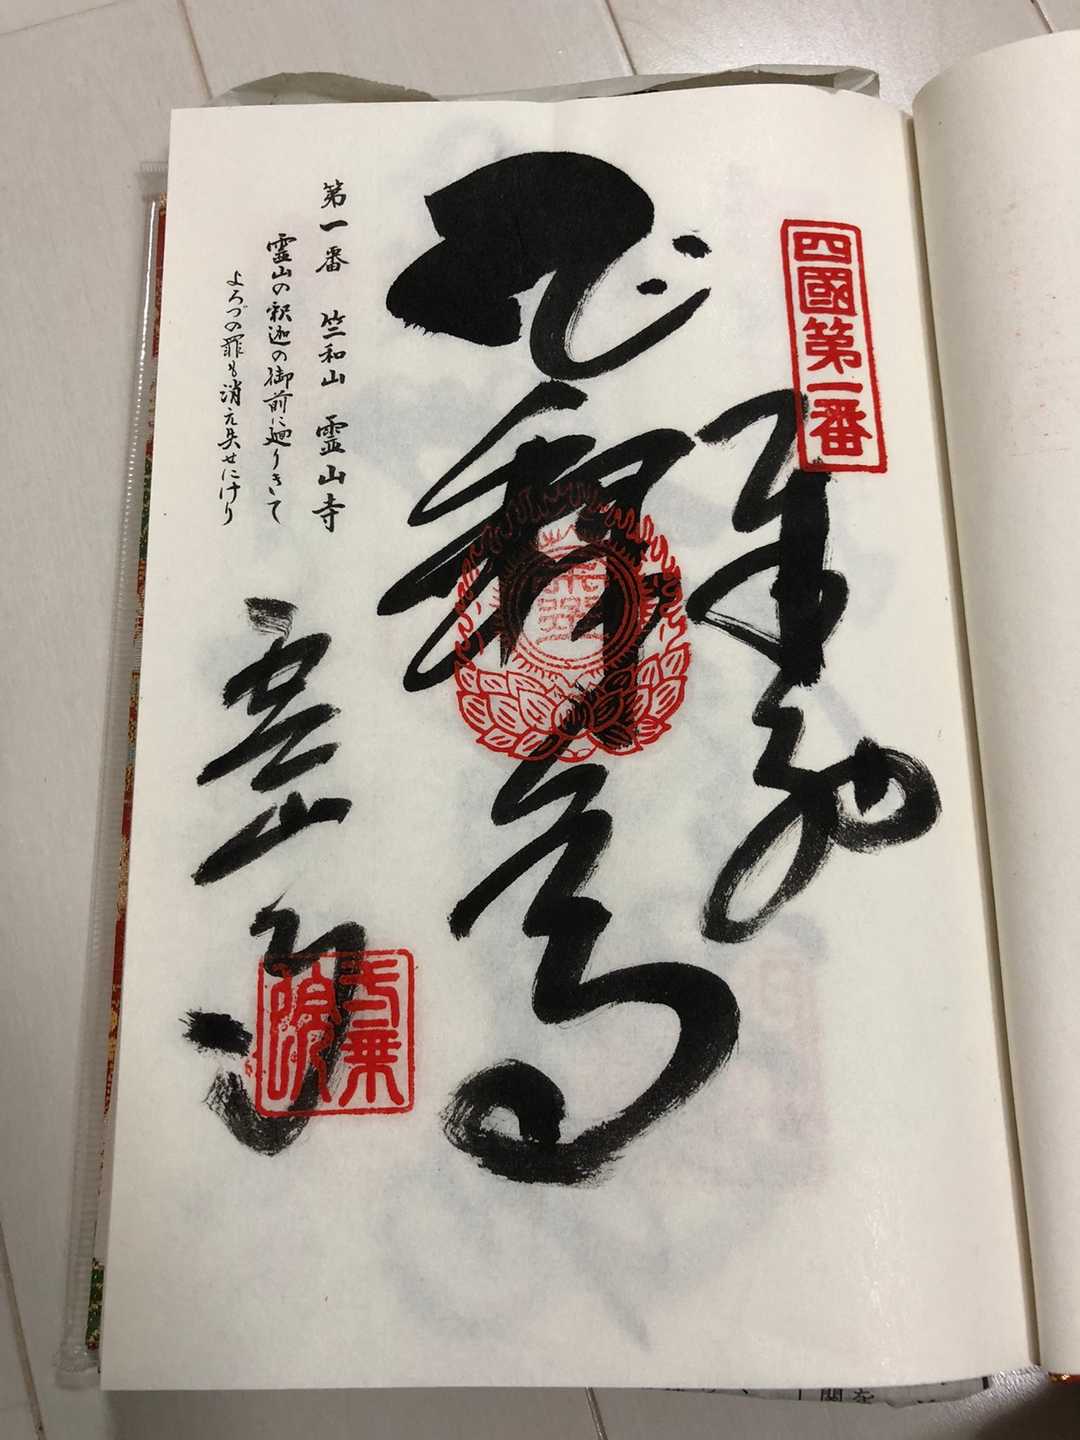 四國第一番
奉納
霊山寺
第一番　竺和山　霊山寺
霊山の釈迦の御前に廻りきて
よろづの罪も消え失せにけり